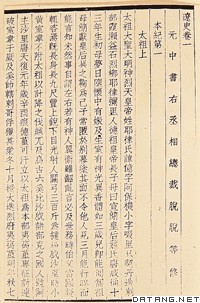 遼史卷一
元中書右丞相總裁脫脫等修
本紀第一
太祖上
太祖大聖大明神烈天皇帝姓耶律氏諱億字阿保機小字
部霞瀨益石烈鄉耶律彌里人德祖皇帝長子母曰宣簡皇后蕭氏唐咸通十
三年生初母夢日墮懷中有娠及生室有神光異香體如三歲兒即能匍匐祖
母簡獻皇后異之鞠為己子常匿於別幕塗其面不令他人見三月能行晬而
能言知未然事自謂左右若有神人翼衛雖齠齔言必及世務時伯父當國疑
輒咨焉既長身長九尺豐上銳下目光射人關弓三百斤
室韋不附太祖以計降之伐越兀及烏古六奚比沙
沙里唐天復元年歲辛酉痕德堇可汗立以太祖為本部夷離堇專征討連破
室韋于厥及奚帥轄剌哥俘獲甚眾冬十月授大迭烈府夷離堇
DATANG.NET